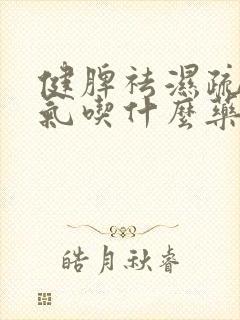 健脾祛濕疏
氣喫什麼藥
皓月秋睿